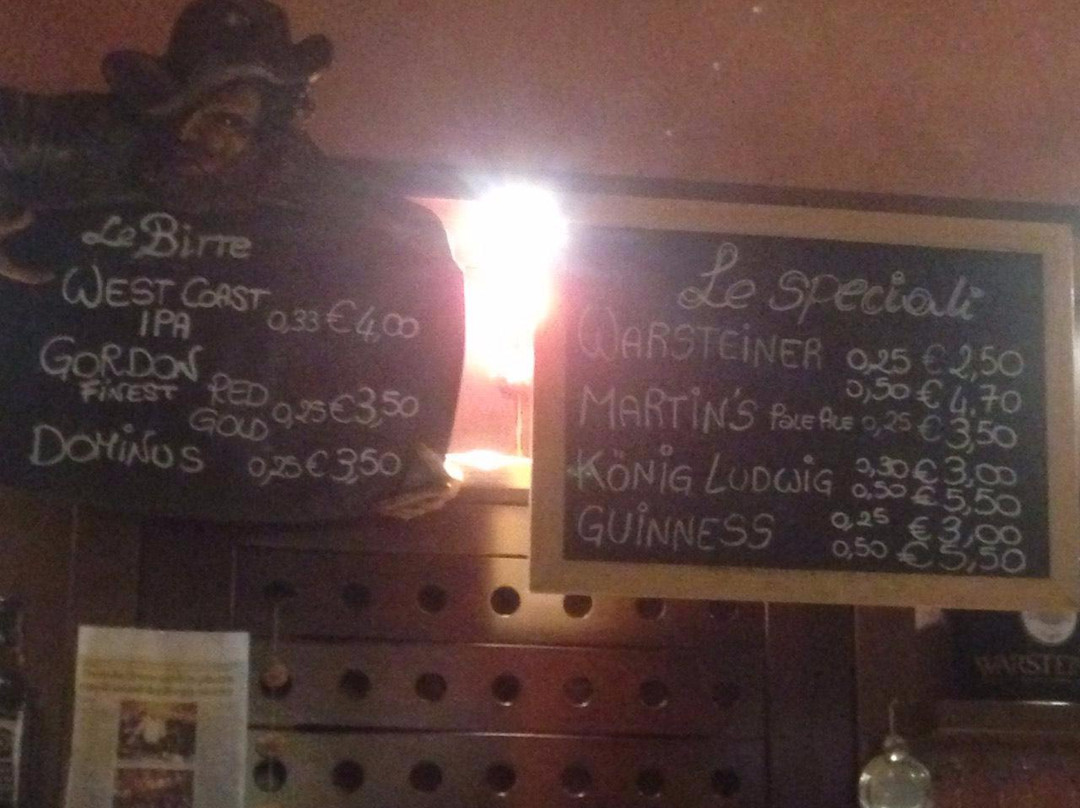 Le Birre
WEST COAST
IPA 0,33 € 4,00
GORDON
FINEST RED
GOLD 0,25 € 3,50
DOMINUS 0,25 € 3,50
Le speciali
WARSTEINER 0,25 € 2,50
0,50 € 4,70
MARTIN'S Pale Ale 0,25 € 3,50
KÖNIG LUDWIG 0,30 € 3,00
0,50 € 5,50
GUINNESS 0,25 € 3,00
0,50 € 5,50